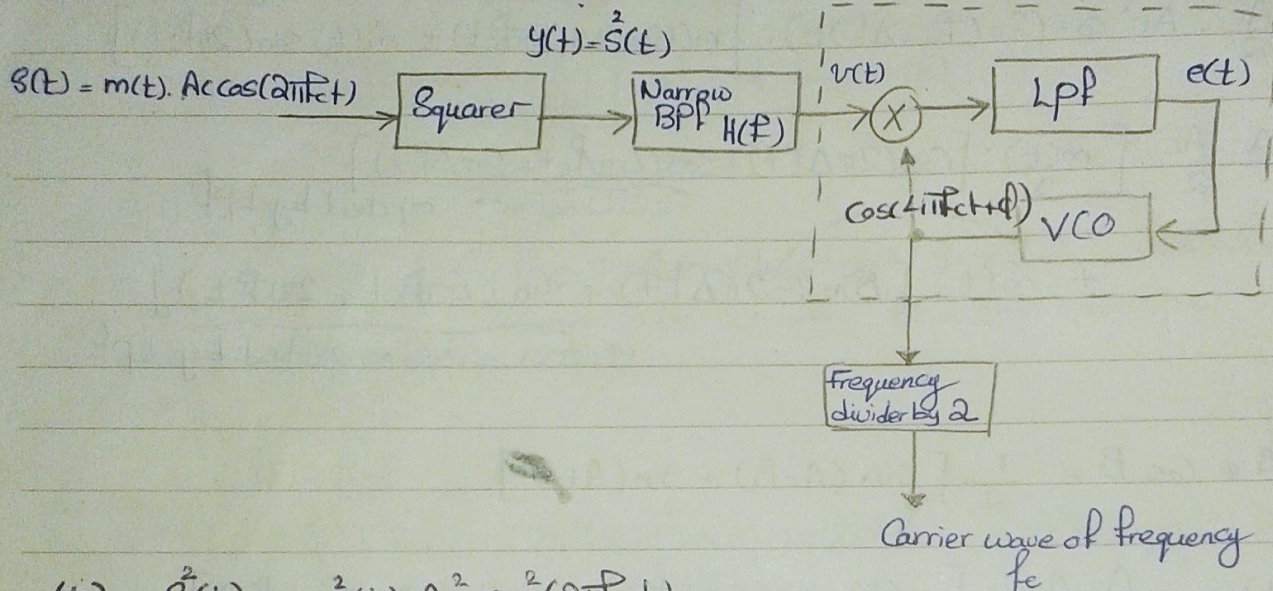 y(t)=s²(t)
s(t) = m(t). Ac cos(2πfct)
Squarer
Narrow
BPf H(f)
v(t)
X
Lpf
e(t)
cos(4πfct+φ)
VCO
frequency
divider by 2
Carrier wave of frequency
fc